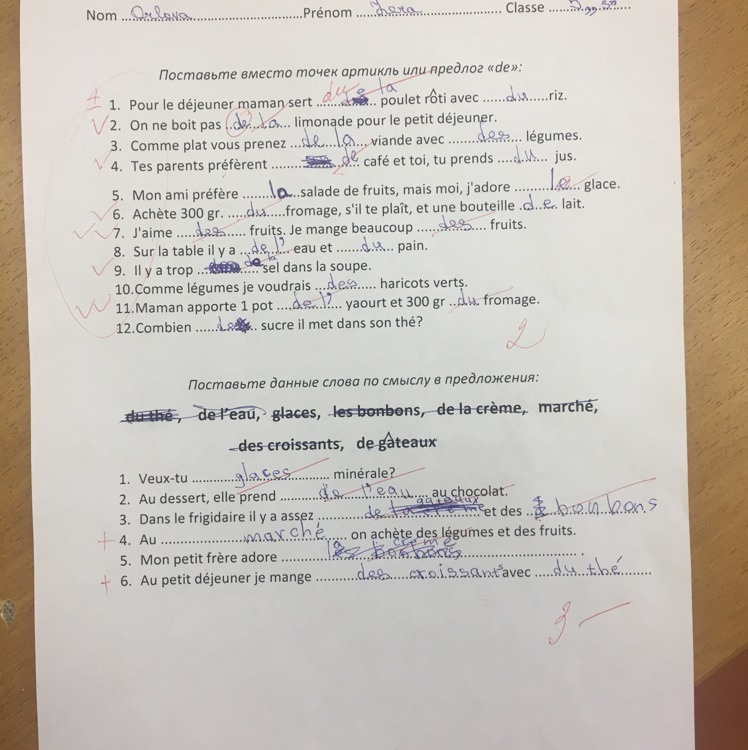 Nom ...Orlova...Prénom ... ... Classe ...
Поставьте вместо точек артикль или предлог «de»:
± 1. Pour le déjeuner maman sert ...du de la... poulet rôti avec ......du......riz.
2. On ne boit pas .de...la... limonade pour le petit déjeuner.
3. Comme plat vous prenez ...de...la... viande avec ......des...... légumes.
4. Tes parents préfèrent ......de café et toi, tu prends ...du... jus.
5. Mon ami préfère ......la...salade de fruits, mais moi, j'adore ......le... glace.
6. Achète 300 gr. ....du....fromage, s'il te plaît, et une bouteille .de.. lait.
7. J'aime ....des...... fruits. Je mange beaucoup ...des...... fruits.
8. Sur la table il y a ...de l'... eau et .....du..... pain.
9. Il y a trop ...de la... sel dans la soupe.
10.Comme légumes je voudrais ...des..... haricots verts.
11.Maman apporte 1 pot ....de l'... yaourt et 300 gr ..du fromage.
12.Combien .....de... sucre il met dans son thé?
2
Поставьте данные слова по смыслу в предложения:
du thé, de l'eau, glaces, les bonbons, de la crème, marché,
des croissants, de gâteaux
1. Veux-tu ......glaces...... minérale?
2. Au dessert, elle prend ......de l'eau...... au chocolat.
3. Dans le frigidaire il y a assez ......de gataux et des ... bonbons
+ 4. Au ......marché..... on achète des légumes et des fruits.
5. Mon petit frère adore ......la crème...... .
+ 6. Au petit déjeuner je mange ......des croissants avec ....du thé......
3 —